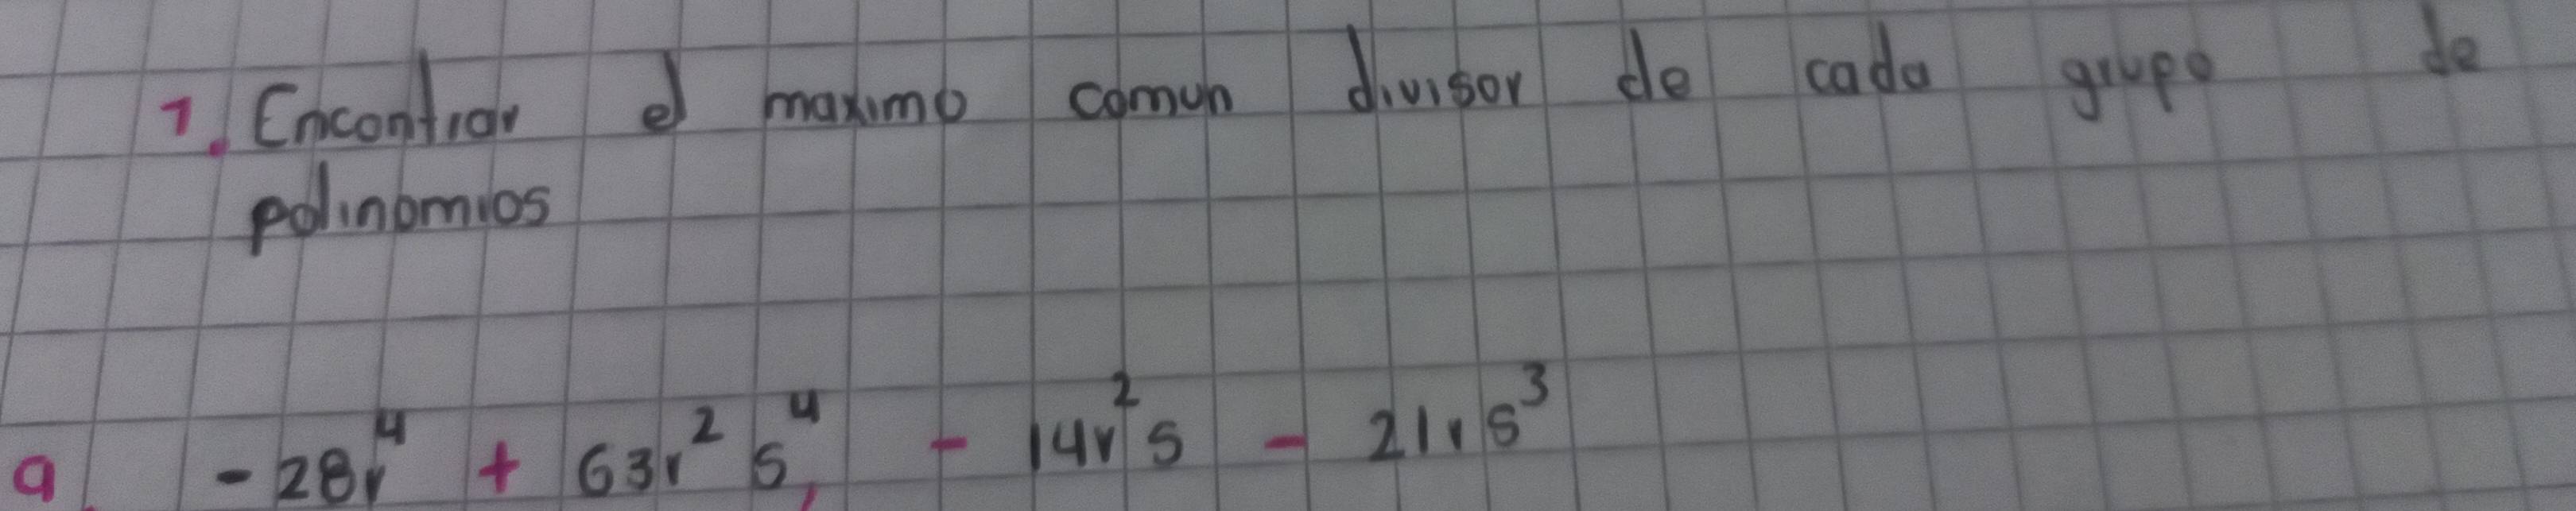 1. Encontrar el maximo comun divisor de cada grupo de
polinomios
a. -28r⁴ + 63r²s⁴, - 14r²s - 21rs³